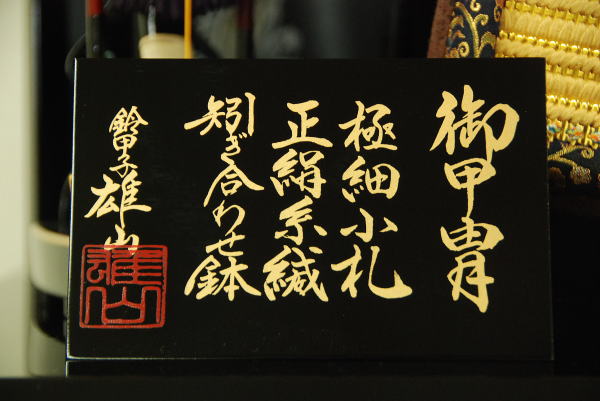 御甲冑
極細小札
正絹糸縅
矧ぎ合わせ鉢
鈴甲子雄山
雄山